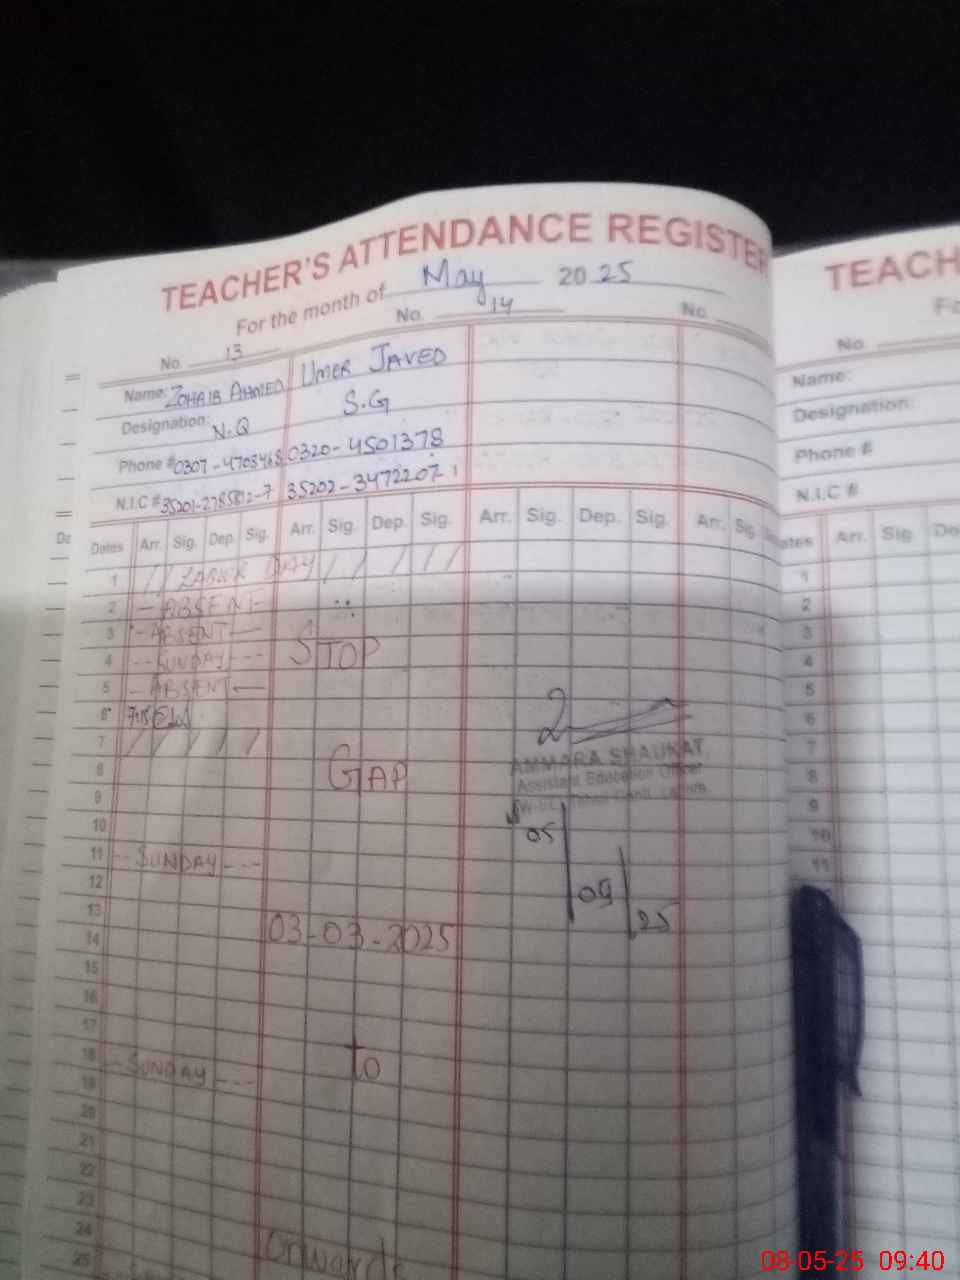 TEACHER'S ATTENDANCE REGISTER
For the month of May 2025
No. 13 No. 14 No.
Name: ZOHAIB AHMED UMER JAVED
Designation: N.Q S.G
Phone # 0307-4703468 0320-4501378
N.I.C # 35201-2785812-7 35202-3472207-1
Dates Arr. Sig. Dep. Sig. Arr. Sig. Dep. Sig. Arr. Sig. Dep. Sig. Arr. Sig.
1 LABOUR DAY
2 -ABSENT-
3 -ABSENT-
4 --SUNDAY---
STOP
5 -ABSENT-
6 7:15
7
8
GAP
AMMARA SHAUKAT
Assistant Education Officer
9
10
05
11 --SUNDAY---
12
09
25
13
03-03-2025
14
15
16
17
18 --SUNDAY---
To
19
20
21
22
23
24
onwards
25
TEACH
No.
Name:
Designation:
Phone #
N.I.C #
Arr. Sig.
1
2
3
4
5
6
7
8
9
10
11
08-05-25 09:40